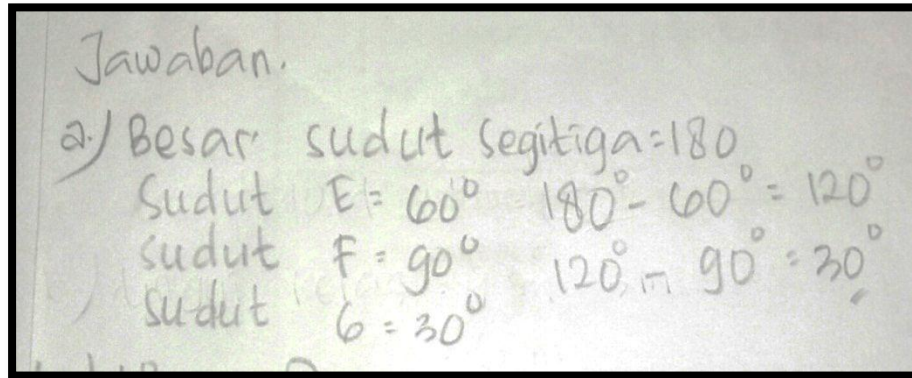 Jawaban.
a.) Besar sudut segitiga=180
Sudut E= 60° 180°- 60° = 120°
sudut F = 90° 120° - 90° = 30°
sudut G = 30°